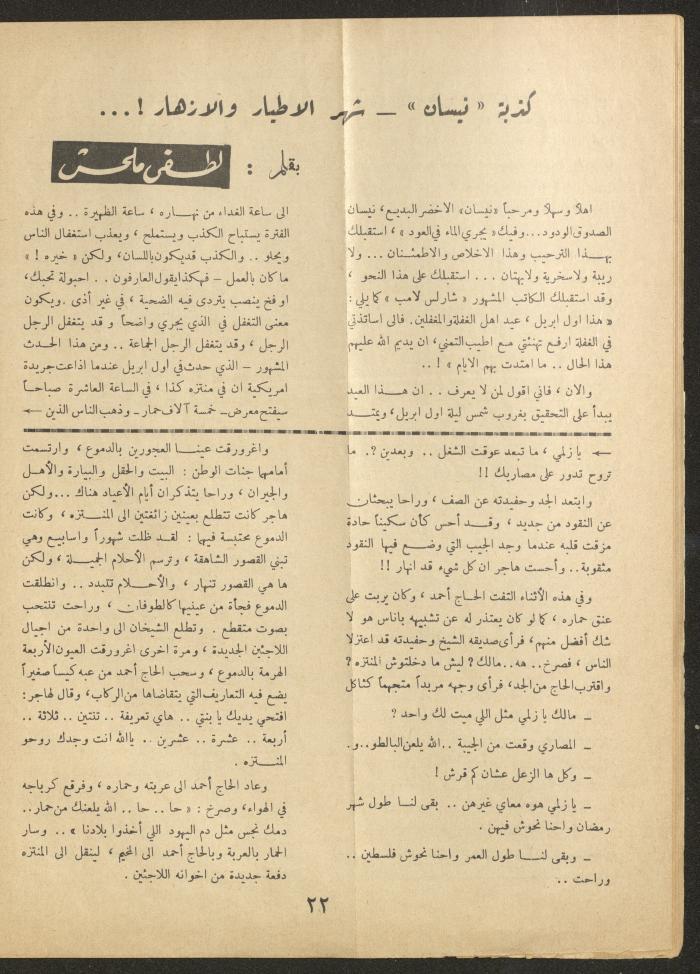 كذبة «نيسان» — شهر الاطيار والازهار !...
بقلم : لطفي ملحس
اهلاً وسهلاً ومرحباً «نيسان» الاخضر البديع، نيسان
الصدوق الودود... وفيك «يجري الماء في العود» ، استقبلك
بهذا الترحيب وهذا الاخلاص والاطمئنان ... ولا
ريبة ولا سخرية ولا بهتان ... استقبلك على هذا النحو ،
وقد استقبلك الكاتب المشهور « شارلس لامب » كما يلي :
« هذا اول ابريل ، عيد اهل الغفلة والمغفلين. فالى اساتذتي
في الغفلة ارفع تهنئتي مع اطيب التمني، ان يديم الله عليهم
هذا الحال .. ما امتدت بهم الايام » ! ..
والان ، فاني اقول لمن لا يعرف .. ان هذا العيد
يبدأ على التحقيق بغروب شمس ليلة اول ابريل، ويمتد
الى ساعة الغداء من نهاره ، ساعة الظهيرة .. وفي هذه
الفترة يستباح الكذب ويستملح ، ويعذب استغفال الناس
ويحلو .. والكذب قد يكون باللسان، ولكن « خيره » !
ما كان بالعمل – فهكذا يقول العارفون .. احبولة تحبك،
او فخ ينصب يتردى فيه الضحية ، في غير أذى . ويكون
معنى التغفل في الذي يجري واضحاً وقد يتغفل الرجل
الرجل ، وقد يتغفل الرجل الجماعة .. ومن هذا الحدث
المشهور – الذي حدث في اول ابريل عندما اذاعت جريدة
امريكية ان في منتزه كذا ، في الساعة العاشرة صباحاً
سيفتح معرض – خمسة آلاف حمار – وذهب الناس الذين ←
← يا زلمي ، ما تبعد عوقت الشغل .. وبعدين ؟. ما
تروح تدور على مصاريك !!
وابتعد الجد وحفيدته عن الصف ، وراحا يبحثان
عن النقود من جديد ، وقد أحس كأن سكيناً حادة
مزقت قلبه عندما وجد الجيب التي وضع فيها النقود
مثقوبة .. وأحست هاجر ان كل شيء قد انهار !!
وفي هذه الأثناء التفت الحاج أحمد ، وكان يربت على
عنق حماره ، كما لو كان يعتذر له عن تشبيهه باناس هو لا
شك أفضل منهم، فرأى صديقه الشيخ وحفيدته قد اعتزلا
الناس ، فصرخ .. هه .. مالك ؟ ليش ما دخلتوش المنتزه ؟
واقترب الحاج من الجد، فرأى وجهه مربداً متجهماً كثاكل
– مالك يا زلمي مثل اللي ميت لك واحد ؟
– المصاري وقعت من الجيبة .. الله يلعن البالطو .. و.
– وكل ها الزعل عشان كم قرش !
– يا زلمي هوه معاي غيرهن .. بقى لنا طول شهر
رمضان واحنا نحوش فيهن .
– وبقى لنا طول العمر واحنا نحوش فلسطين ..
وراحت ..
واغرورقت عينا العجوزين بالدموع ، وارتسمت
أمامهما جنات الوطن : البيت والحقل والبيارة والأهل
والجيران ، وراحا يتذكران أيام الأعياد هناك ... ولكن
هاجر كانت تتطلع بعينين زائغتين الى المنتزه ، وكانت
الدموع محتبسة فيها : لقد ظلت شهوراً واسابيع وهي
تبني القصور الشاهقة ، وترسم الأحلام الجميلة ، ولكن
ها هي القصور تنهار ، والأحلام تتبدد .. وانطلقت
الدموع فجأة من عينيها كالطوفان ، وراحت تنتحب
بصوت متقطع . وتطلع الشيخان الى واحدة من اجيال
اللاجئين الجديدة ، ومرة اخرى اغرورقت العيون الأربعة
الهرمة بالدموع ، وسحب الحاج أحمد من عبه كيساً صغيراً
يضع فيه التعاريف التي يتقاضاها من الركاب، وقال لهاجر:
افتحي يديك يا بنتي .. هاي تعريفة .. تنتين .. ثلاثة ..
أربعة .. عشرة .. عشرين .. ياالله انت وجدك روحو
المنتزه .
وعاد الحاج أحمد الى عربته وحماره ، وفرقع كرباجه
في الهواء، وصرخ : « حا .. حا .. الله يلعنك من حمار ..
دمك نجس مثل دم اليهود اللي أخذوا بلادنا » .. وسار
الحمار بالعربة وبالحاج أحمد الى المخيم ، لينقل الى المنتزه
دفعة جديدة من اخوانه اللاجئين .
٢٢